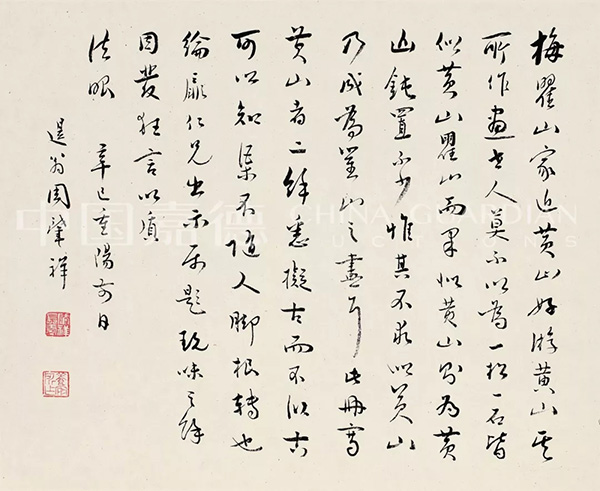 梅瞿山家近黄山好游黄山其
所作畫世人莫不以為一松一石皆
似黄山瞿山而果似黄山則為黄
山鈍置不少惟其不求似黄山
乃成為瞿山之畫耳此册寫
黄山者二餘悉擬古而不似古
可以知渠不随人脚根轉也
綸扉仁兄出示属題玩味之餘
因發狂言以質
法眼 辛巳重陽前日
退翁周肇祥
中国嘉德 CHINA GUARDIAN
AUCTIONS